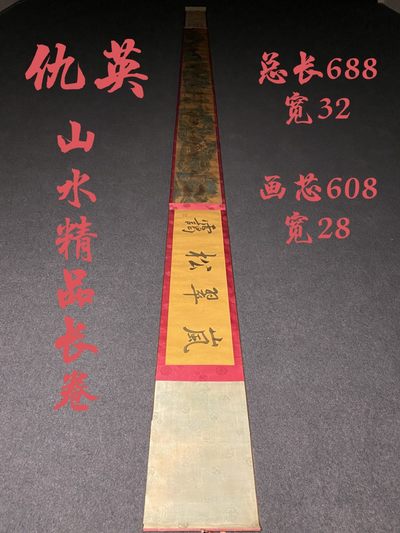 仇英
山水精品长卷
总长688
宽32
画芯608
宽28
嵐翠松